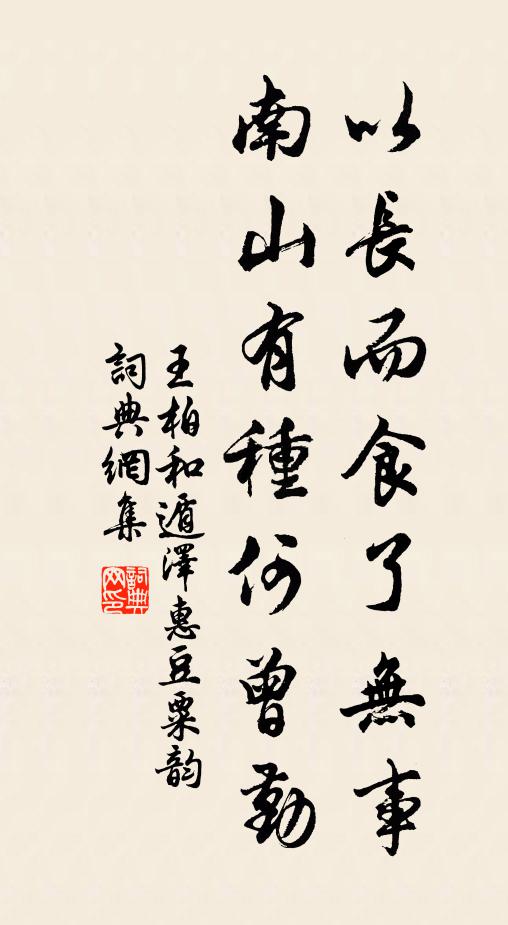 以長而食了無事
南山有種何曾勤
王柏和遁澤惠豆粟韵
詞典網集
詞典
网印